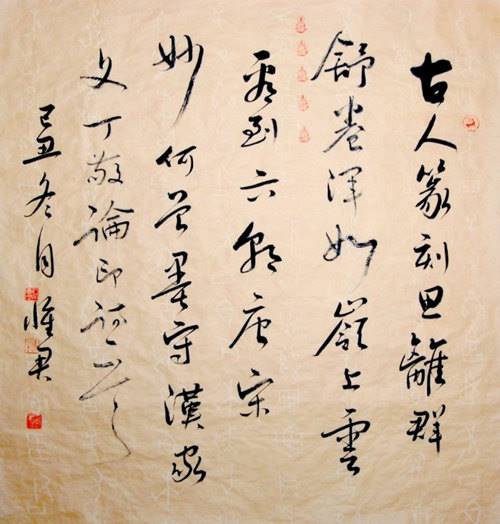 古人篆刻思離群
舒卷渾如嶺上雲
看到六朝唐宋
妙何曾墨守漢家
文丁敬論印詩
己丑冬月惟君